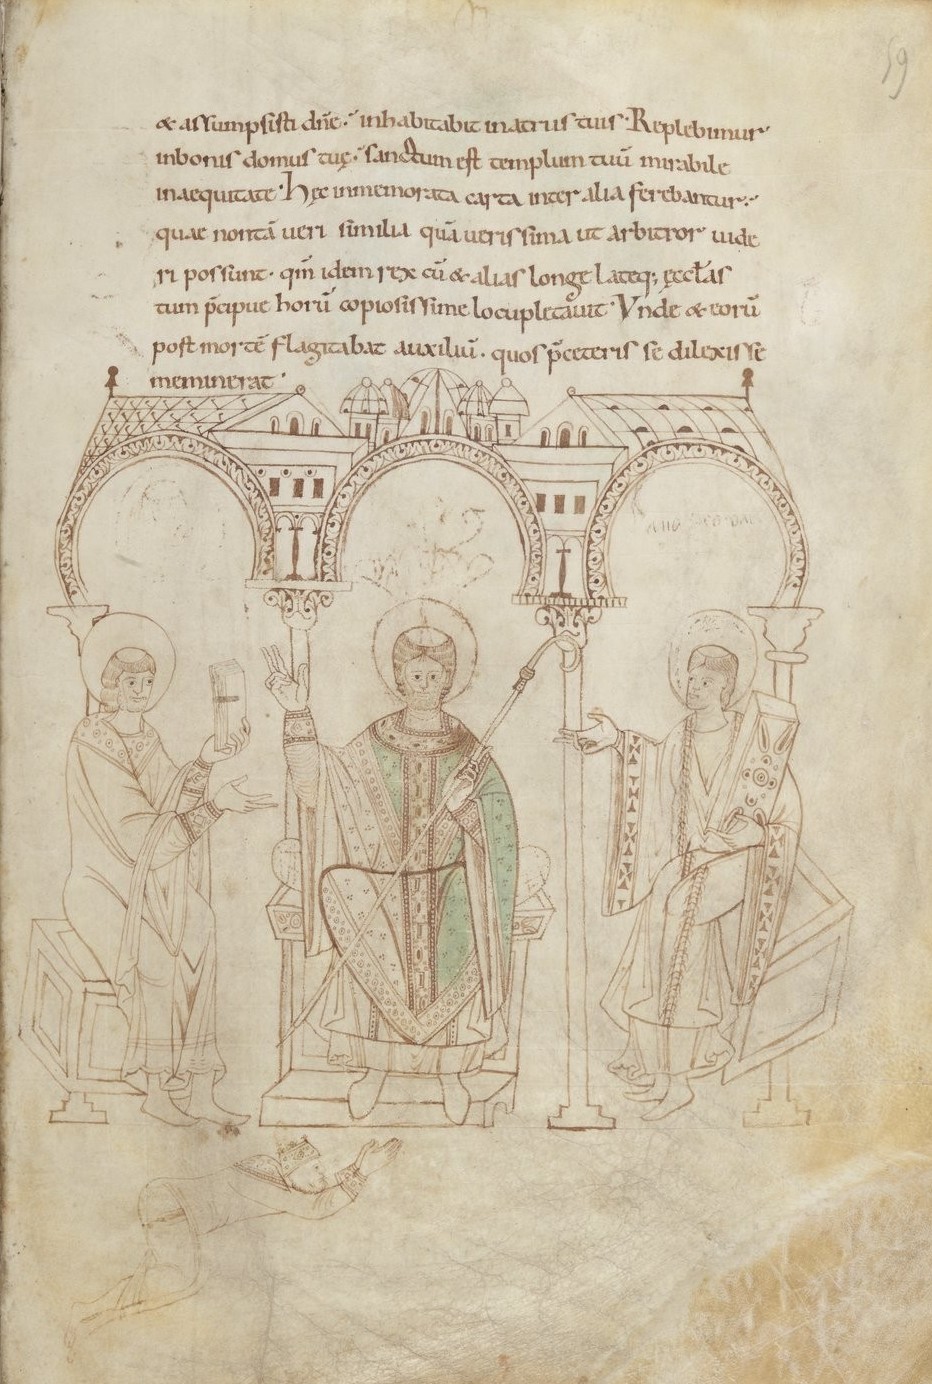 59
& assumpsisti dn̄e· inhabitabit inatriis tuis· Replebimur
inbonis domus tuę· sanctum est templum tuū mirabile
inaequitate· Hęc inmemorata carta inter alia ferebantur·
quae nontā ueri similia quā uerissima ut arbitror uide
ri possunt· qm̄ idem rex cū & alias longe lateq; ęcclas̄
tum p̄cipue horū copiosissime locupletauit· Vnde & eorū
post mortē flagitabat auxiliū· quos p̄ceteris se dilexisse
meminerat·